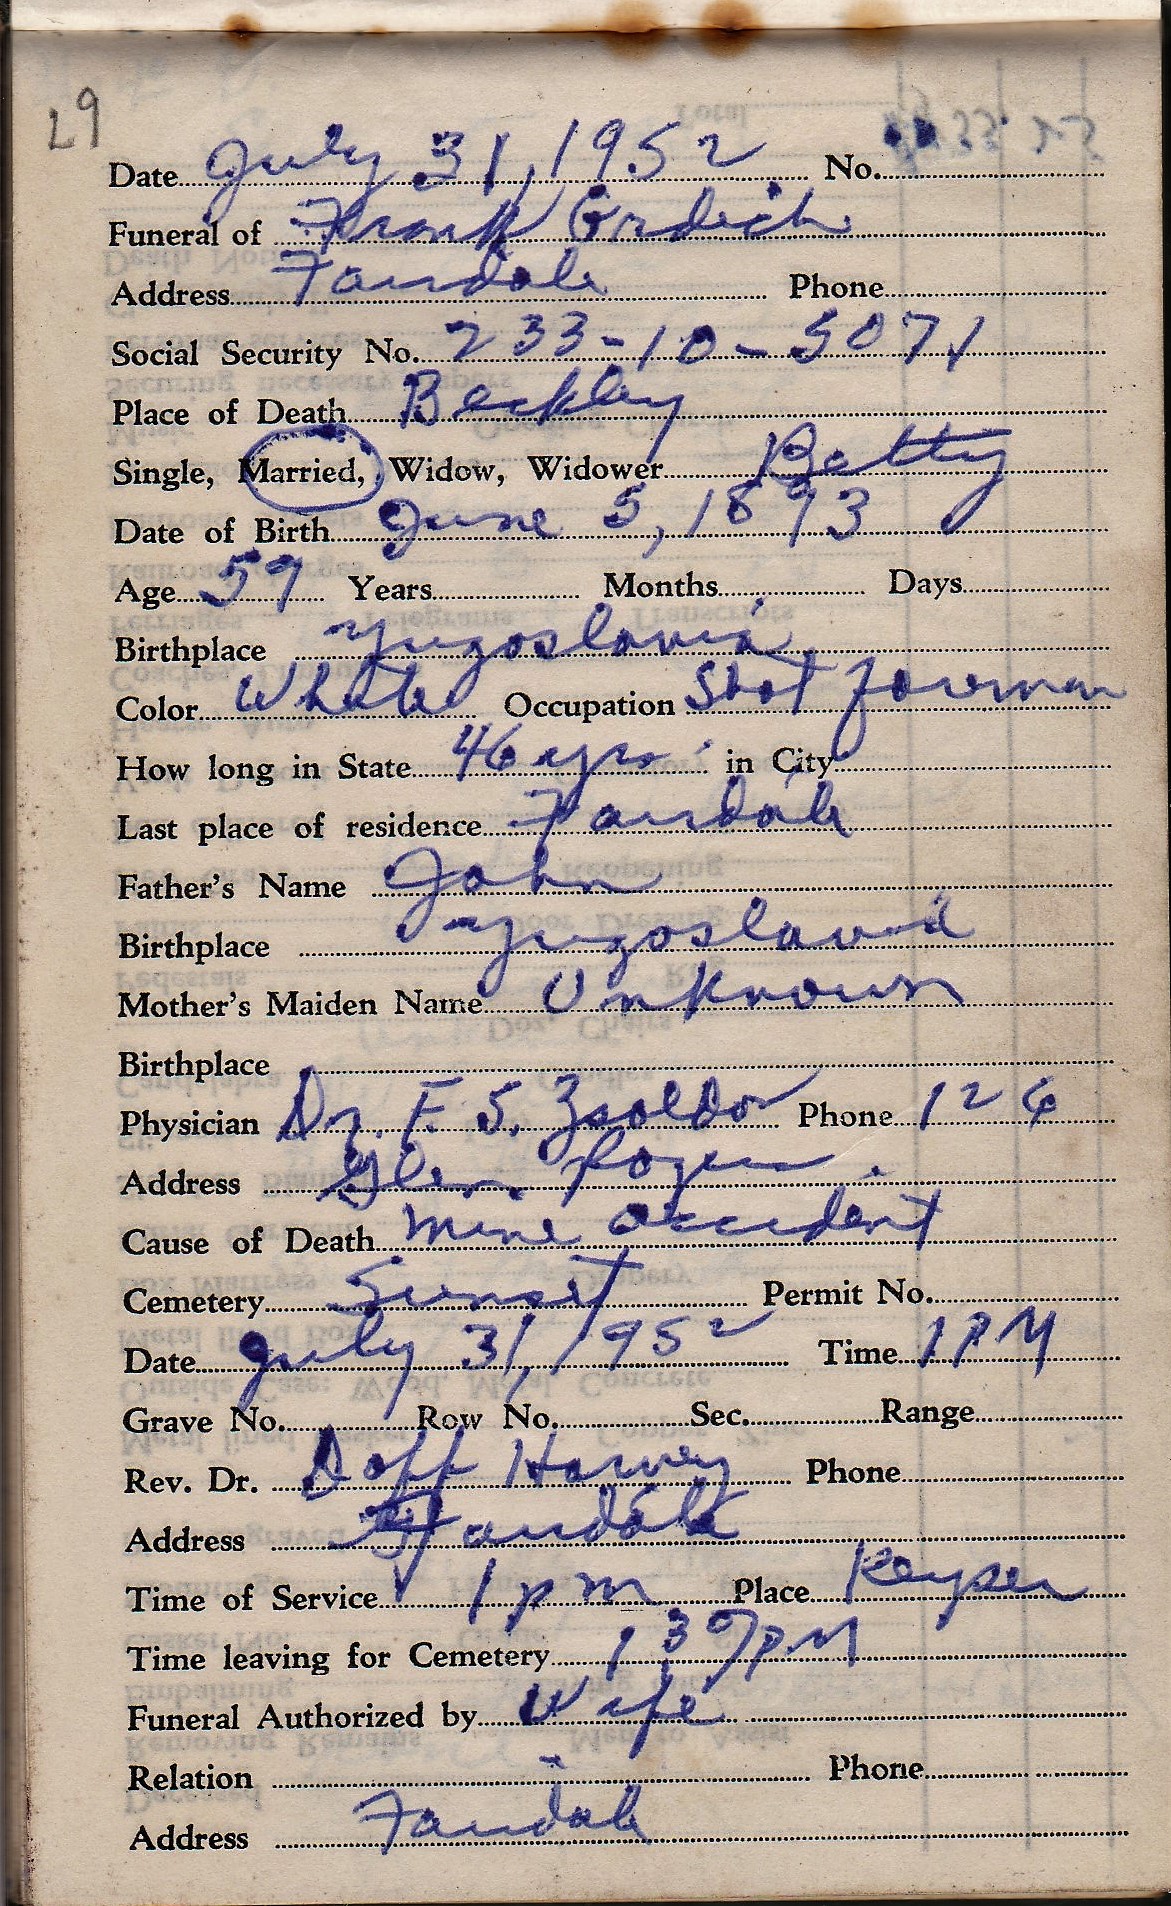 29
Date July 31, 1952 No.
Funeral of Frank Grdich
Address Fairdale Phone
Social Security No. 233-10-5071
Place of Death Beckley
Single, Married, Widow, Widower Betty
Date of Birth June 5, 1893
Age 59 Years Months Days
Birthplace Yugoslavia
Color White Occupation Shot foreman
How long in State 46 yrs in City
Last place of residence Fairdale
Father's Name John
Birthplace Yugoslavia
Mother's Maiden Name Unknown
Birthplace
Physician Dr. F. S. Zsoldos Phone 126
Address Glen Rogers
Cause of Death Mine accident
Cemetery Sunset Permit No.
Date July 31, 1952 Time 1 PM
Grave No. Row No. Sec. Range
Rev. Dr. Doff Harvey Phone
Address Fairdale
Time of Service 1 pm Place Keyser
Time leaving for Cemetery 1 30 PM
Funeral Authorized by Wife
Relation Phone
Address Fairdale